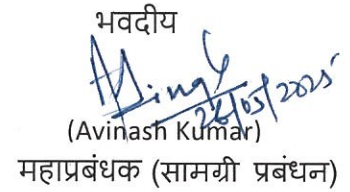 भवदीय
26/05/2025
(Avinash Kumar)
महाप्रबंधक (सामग्री प्रबंधन)